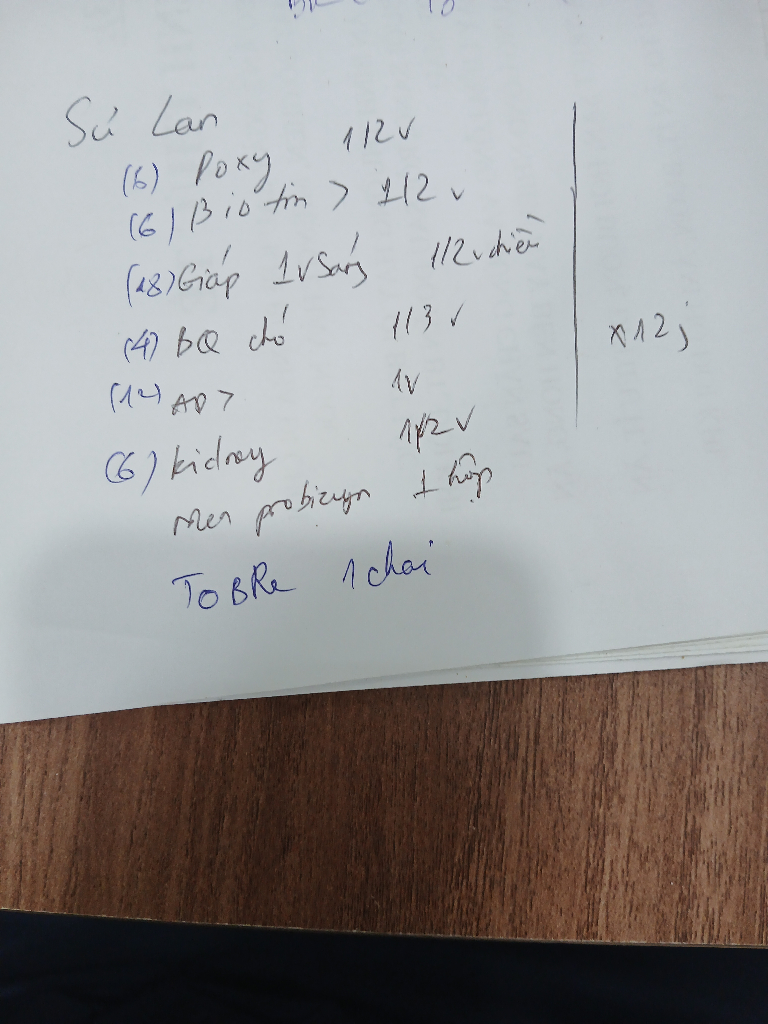 Sú Lan
(6) Poxy 1/2v
(6) Biotin > 1/2 v
(18) Giáp 1v sáng 1/2v chiều
(4) BQ chó 1/3 v
x12j
(12) AD > 1v
(6) kidney 1/2v
Men probizym 1 hộp
TOBRe 1 chai